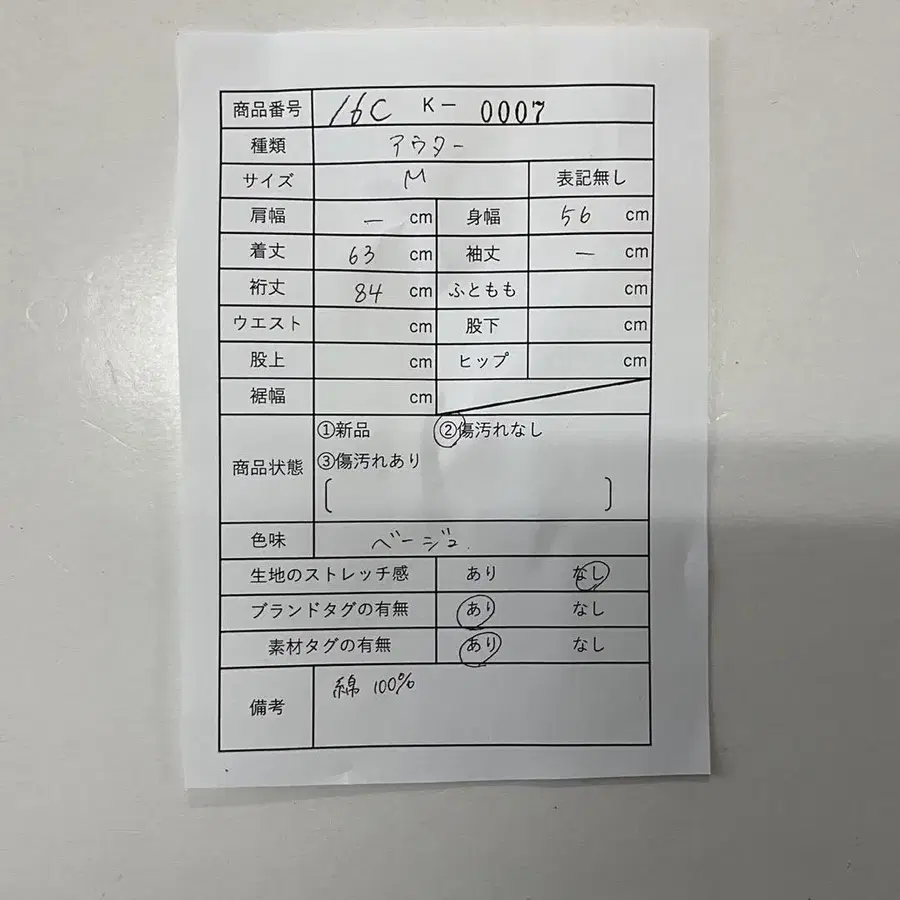 商品番号 16C K- 0007
種類 アウター
サイズ M 表記無し
肩幅 ー cm 身幅 56 cm
着丈 63 cm 袖丈 ー cm
裄丈 84 cm ふともも cm
ウエスト cm 股下 cm
股上 cm ヒップ cm
裾幅 cm
①新品 ②傷汚れなし
商品状態 ③傷汚れあり
色味 ベージュ.
生地のストレッチ感 あり なし
ブランドタグの有無 あり なし
素材タグの有無 あり なし
備考 綿 100%